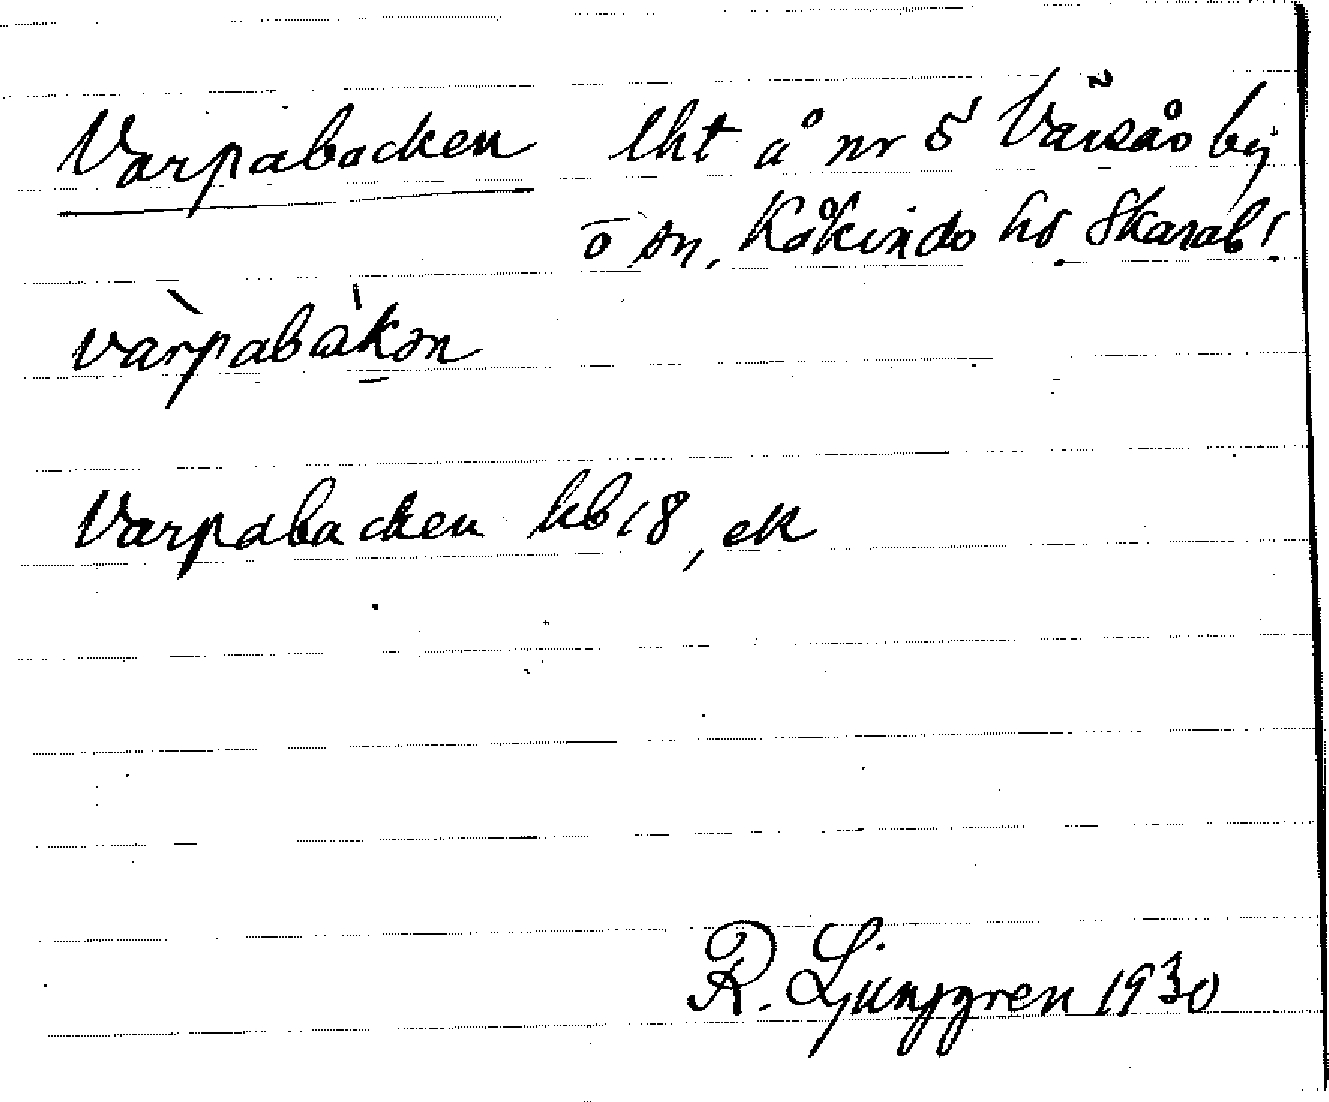 Varpabacken lht å nr 5 Värsås by
o sn, Kåkinds hd Skarab!
vàrpabàkən
Varpabacken kb 18, ek
R. Ljunggren 1930